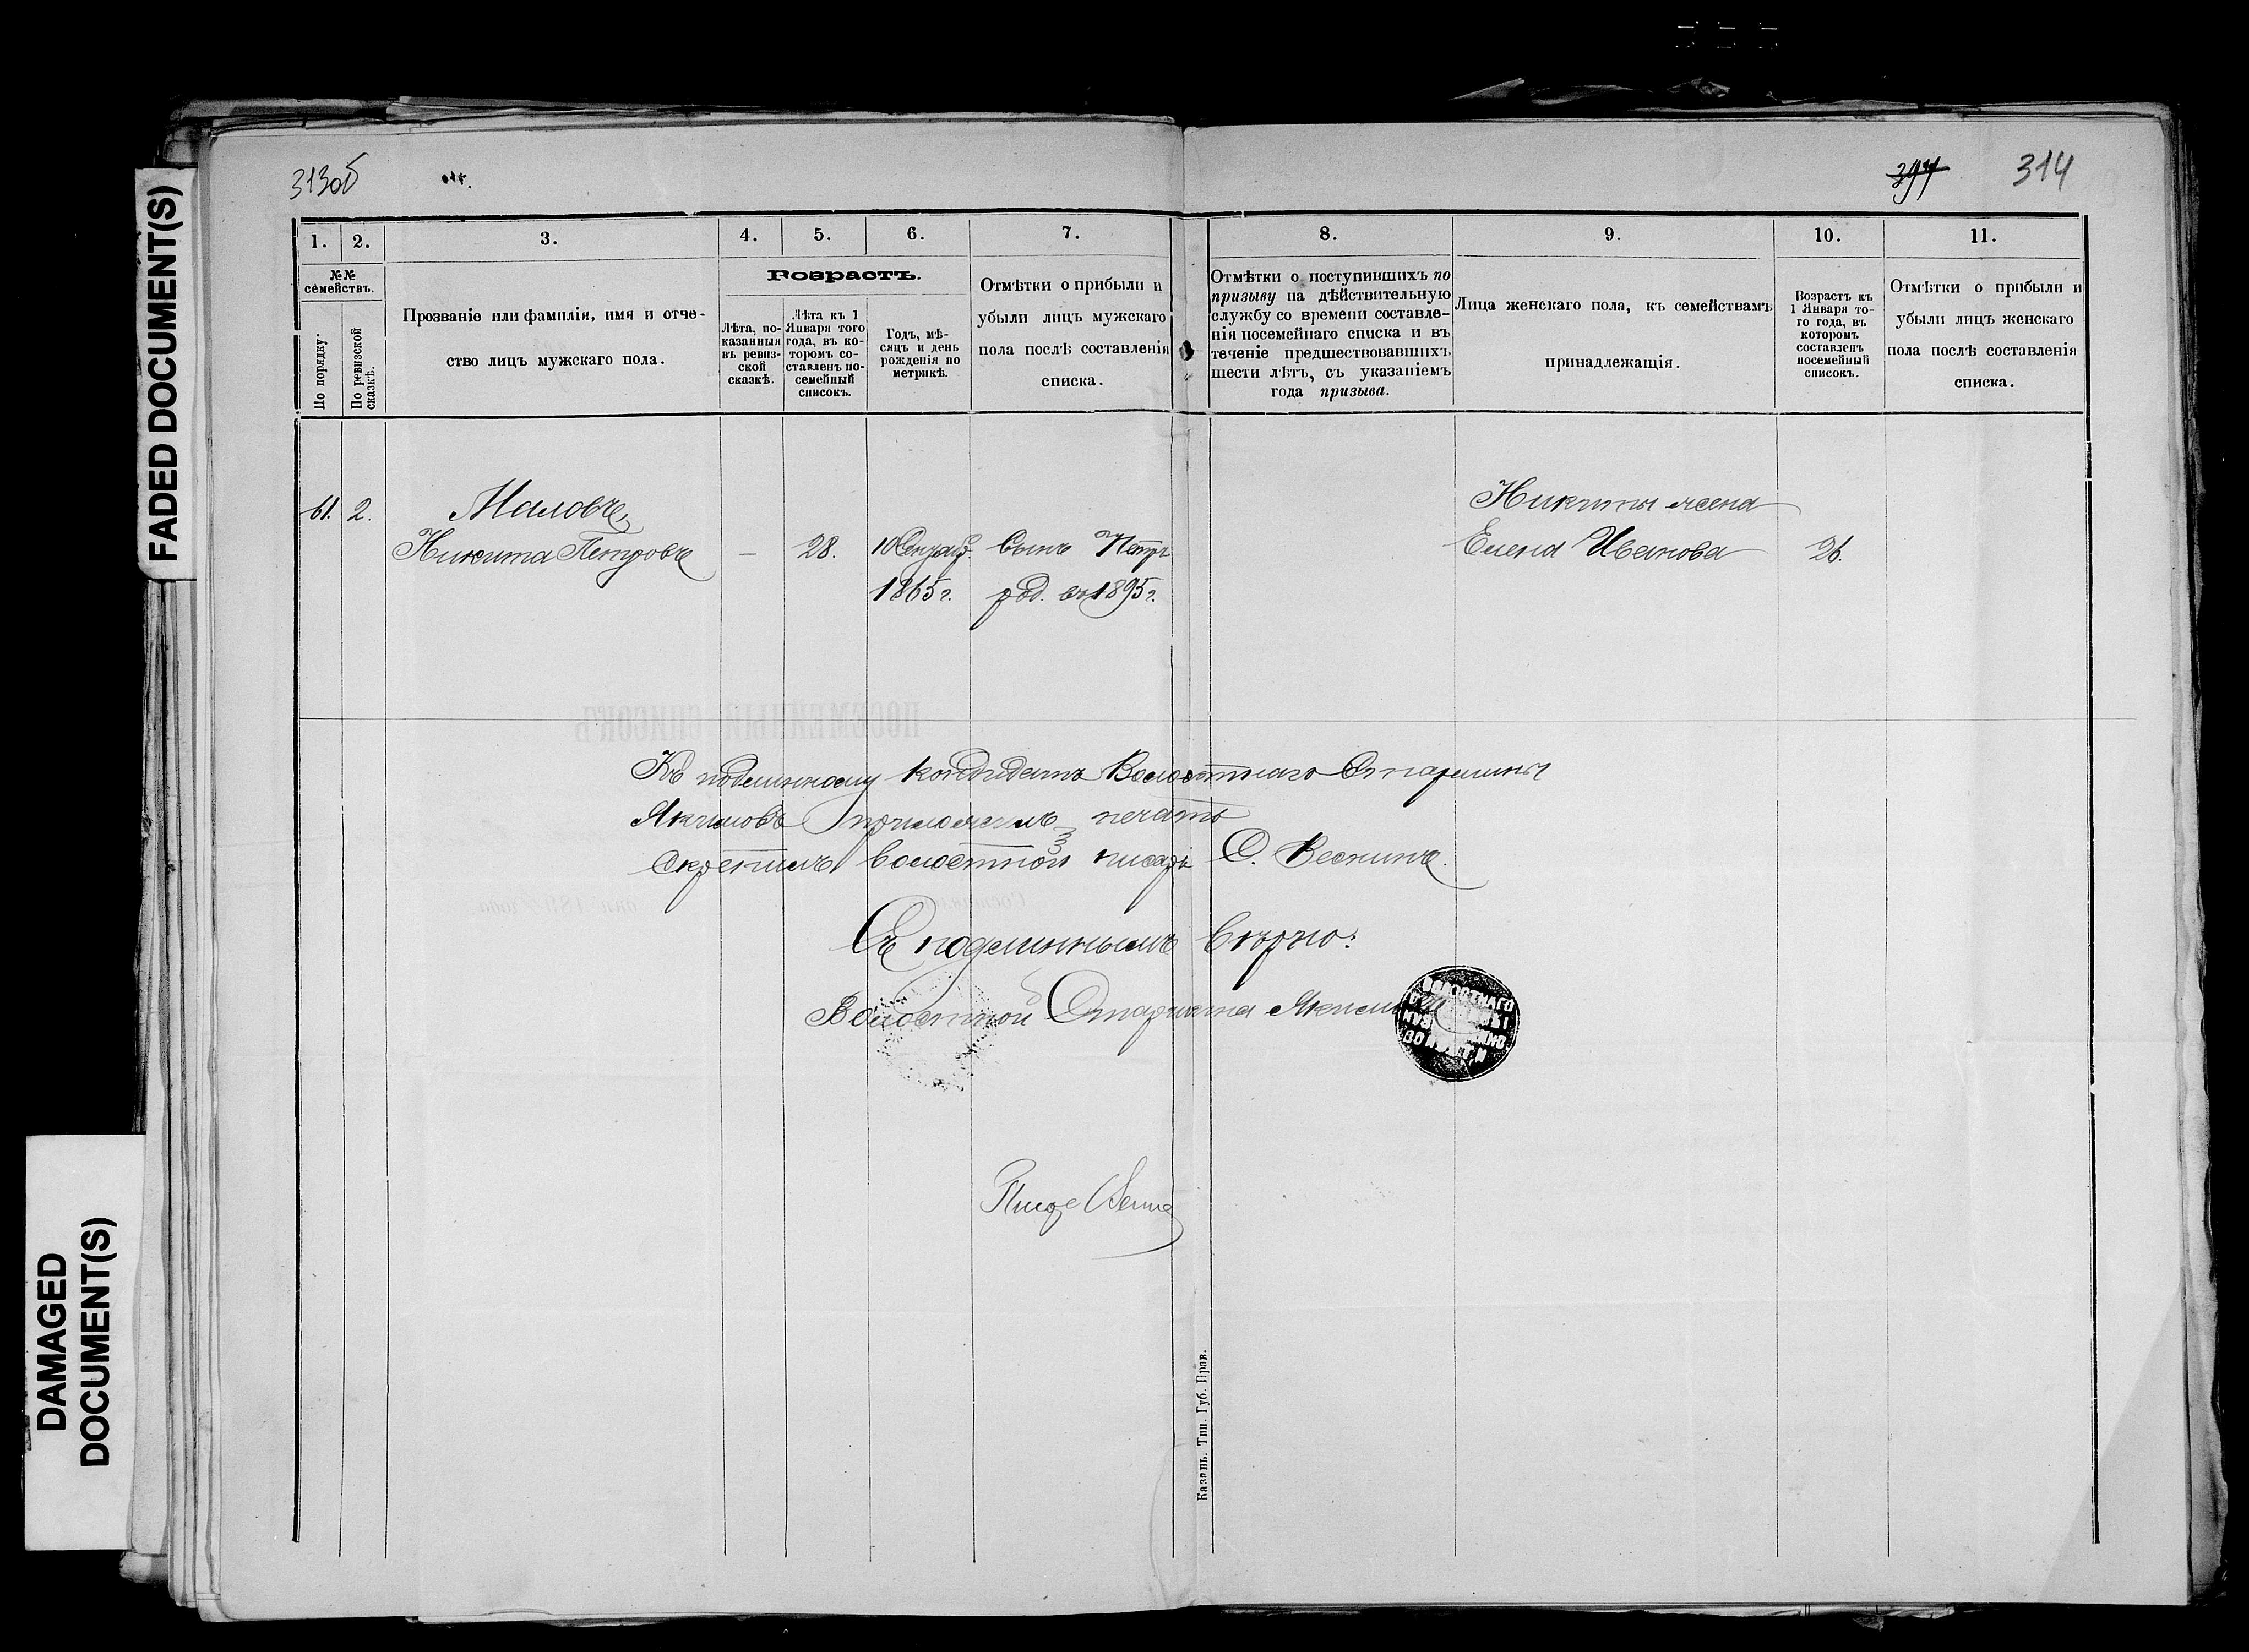 FADED DOCUMENT(S)
DAMAGED
DOCUMENT(S)
313об
394
314
1.
2.
3.
4.
5.
6.
7.
8.
9.
10.
11.
№№
семействъ.
По порядку.
По ревизской
сказкѣ.
Прозваніе или фамилія, имя и отче-
ство лицъ мужскаго пола.
Возрастъ.
Лѣта, по-
казанныя
въ ревиз-
ской
сказкѣ.
Лѣта къ 1
Января того
года, въ ко-
торомъ со-
ставленъ по-
семейный
списокъ.
Годъ, мѣ-
сяцъ и день
рожденія по
метрикѣ.
Отмѣтки о прибыли и
убыли лицъ мужскаго
пола послѣ составленія
списка.
Отмѣтки о поступившихъ по
призыву на дѣйствительную
службу со времени составле-
нія посемейнаго списка и въ
теченіе предшествовавшихъ
шести лѣтъ, съ указаніемъ
года призыва.
Лица женскаго пола, къ семействамъ
принадлежащія.
Возрастъ къ
1 Января то-
го года, въ
которомъ
составленъ
посемейный
списокъ.
Отмѣтки о прибыли и
убыли лицъ женскаго
пола послѣ составленія
списка.
61.
2.
Маловъ,
Никита Петровъ
—
28.
10
1865 г.
Сынъ Петръ
род. въ 1895 г.
Никиты жена
Елена Иванова
26.
ПОСЕМЕЙНЫЙ СПИСОКЪ
Къ подлинному кондидатъ Волостнаго Старшины
Якимовъ приложилъ печать
Скрепилъ волостной писарь С. Веснинъ.
Съ подлиннымъ вѣрно:
Волостной Старшина Якимовъ
ВОЛОСТНАГО
Казань. Тип. Губ. Прав.